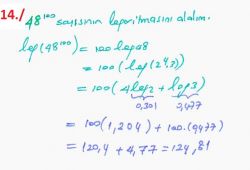 14./ 48¹⁰⁰ sayısının logaritmasını alalım.
log(48¹⁰⁰) = 100 log48
= 100 (log(2⁴.3))
= 100 (4log2 + log3)
0,301 0,477
= 100(1,204) + 100.(0,477)
= 120,4 + 4,77 = 124,81